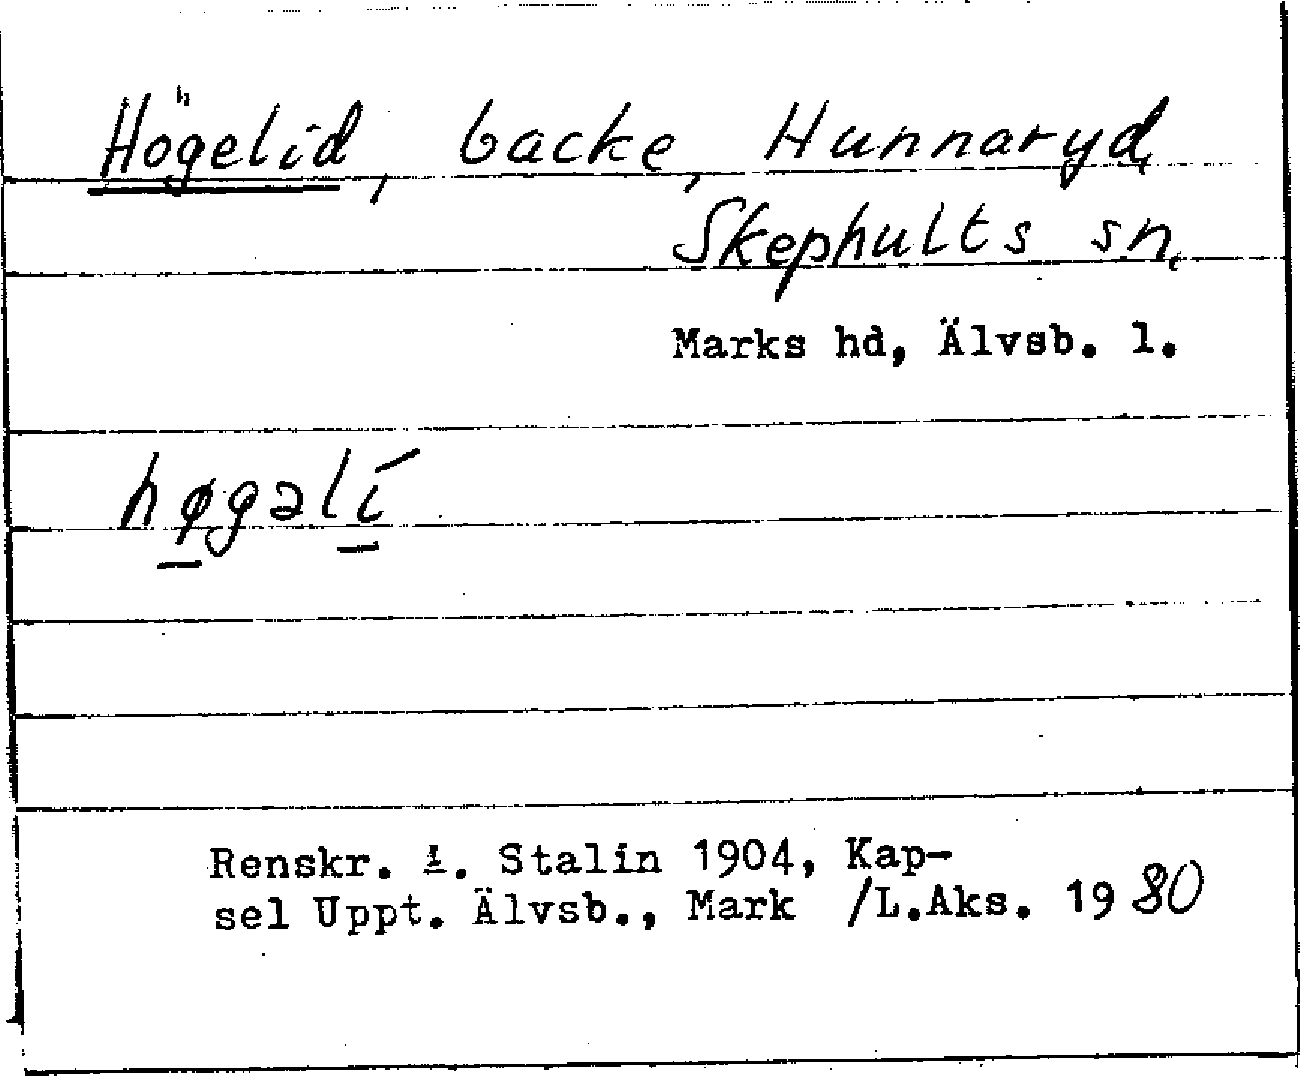 Högelid, backe, Hunnaryd,
Skephults sn.
Marks hd, Älvsb. l.
høgəlí
Renskr. I. Stalin 1904, Kap-
sel Uppt. Älvsb., Mark /L.Aks. 1980